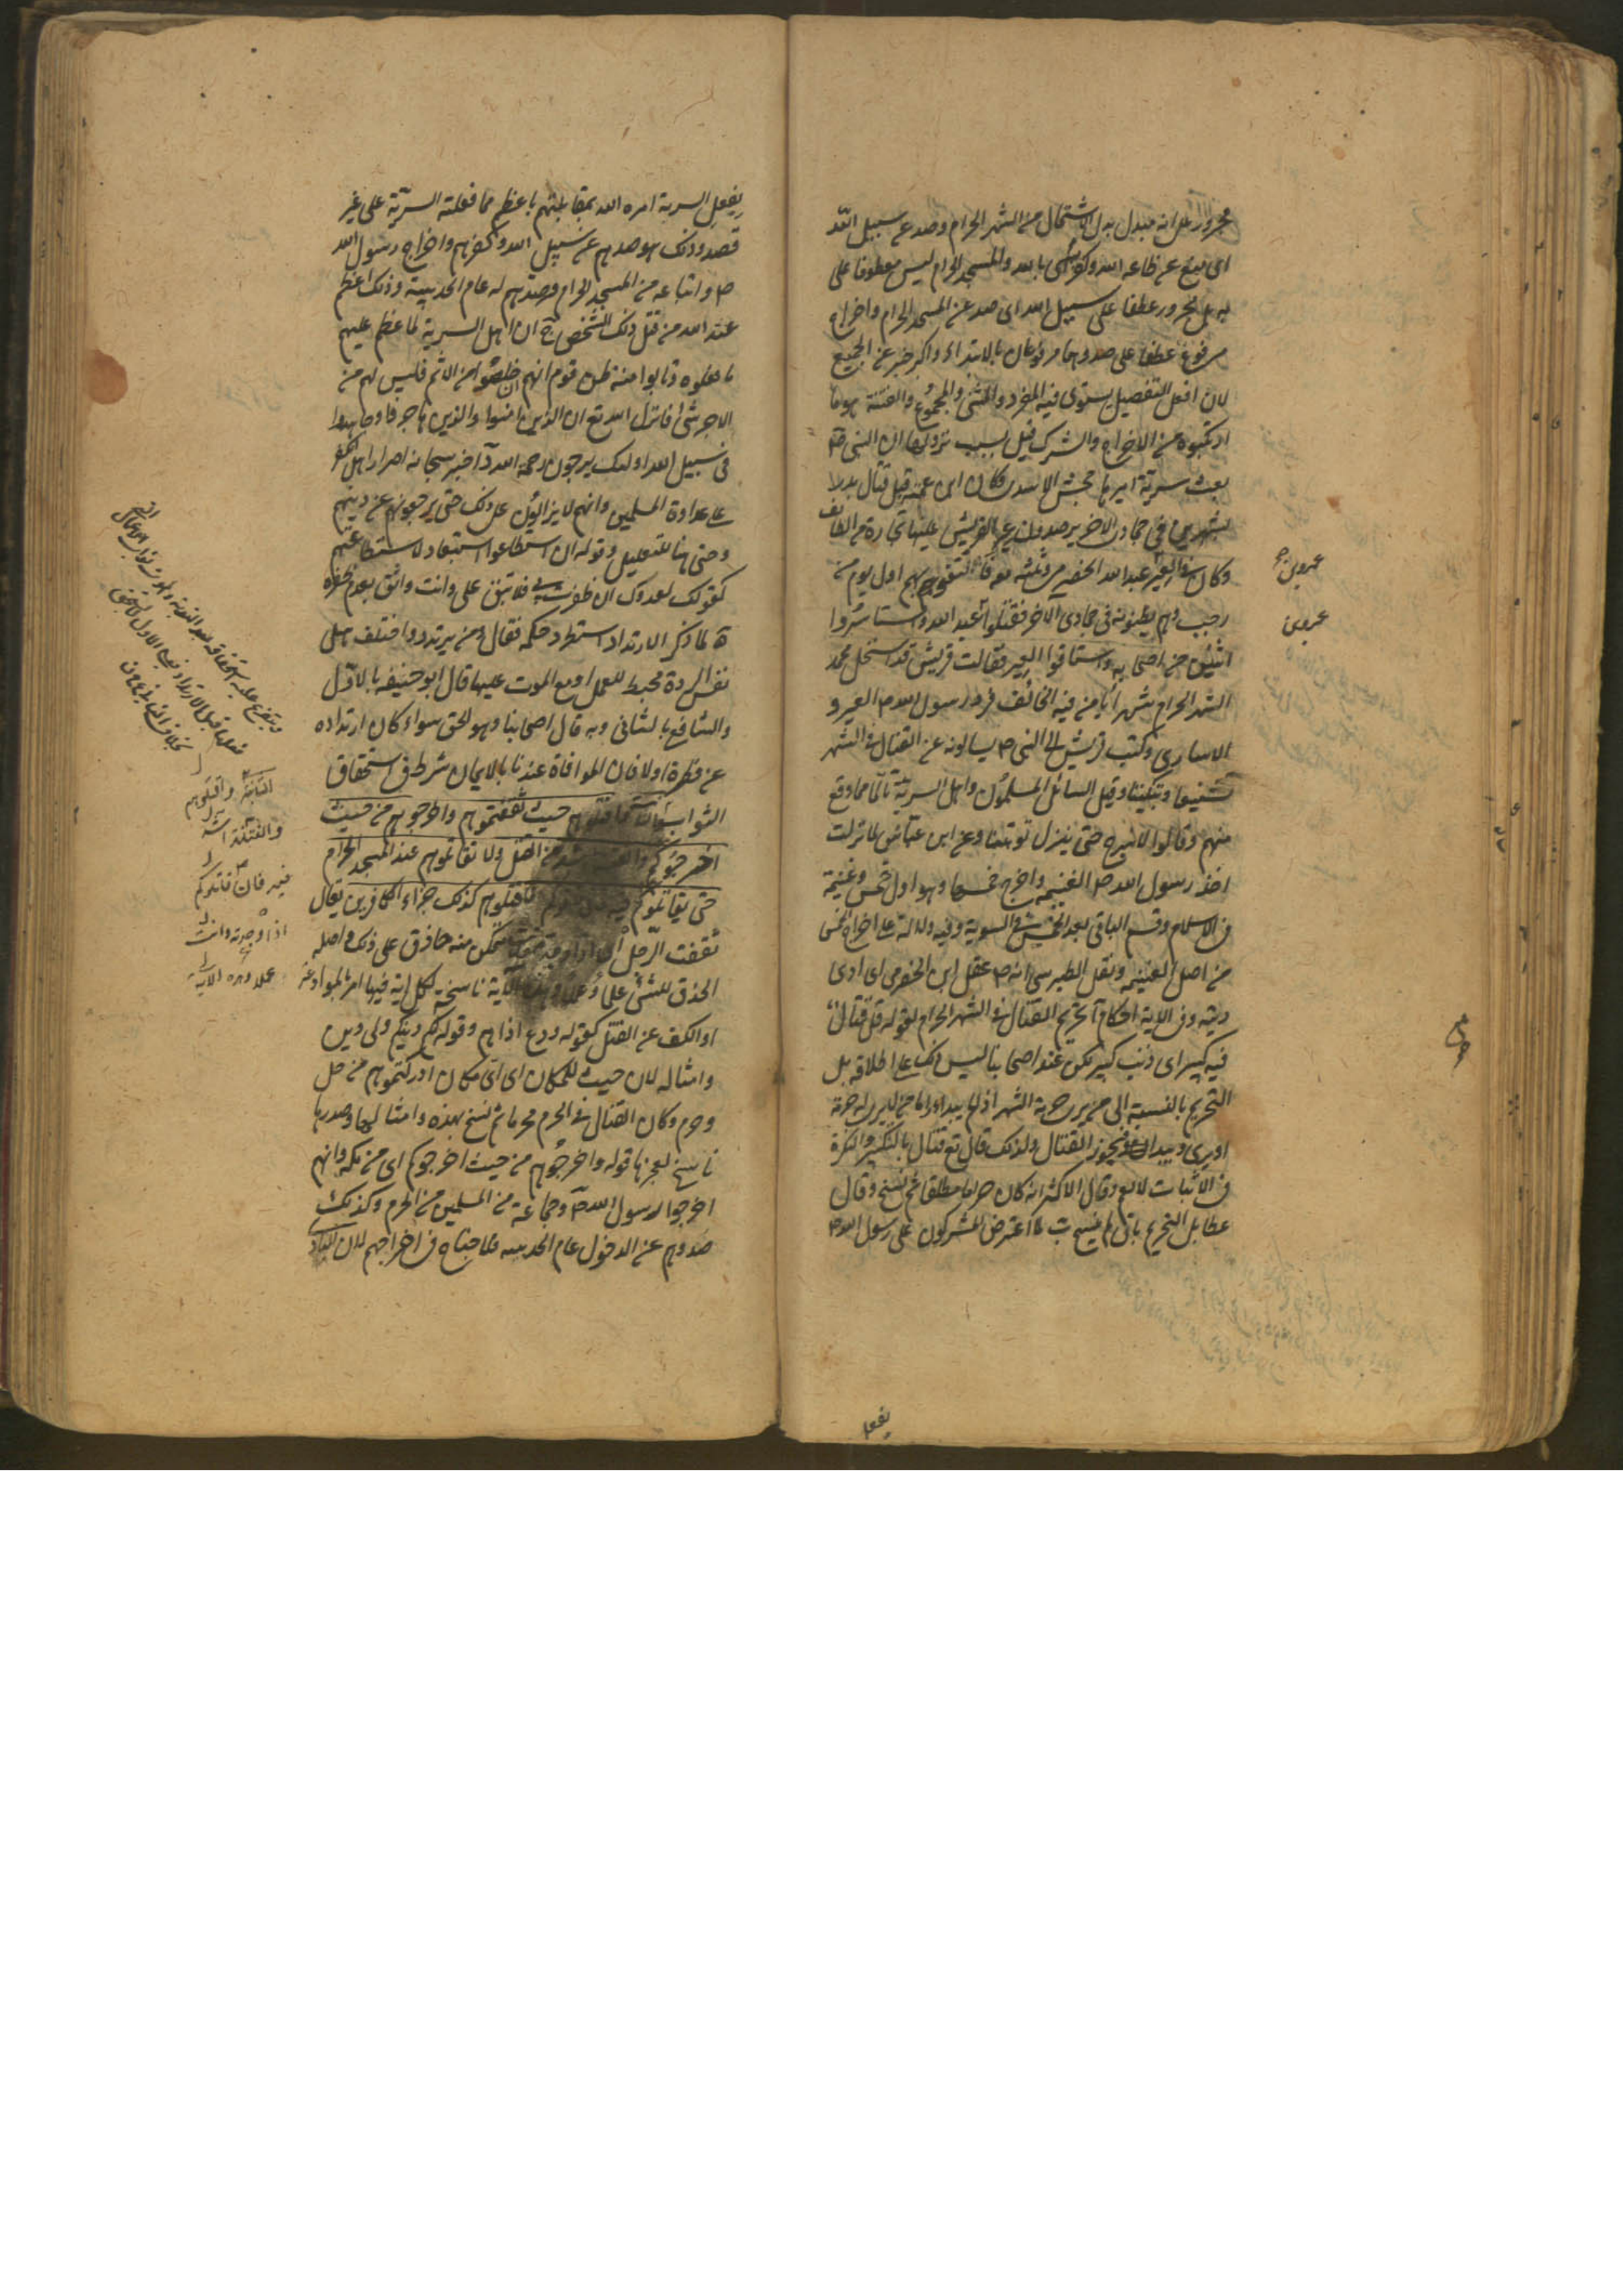 مجرور على انه مبدل بدل الاشتمال من الشهر الحرام وصد عن سبيل الله
اى منع عن طاعة الله وكفر اى بالله والمسجد الحرام ليس معطوفا على
به بل مجرور عطفا على سبيل الله اى صد عن المسجد الحرام واخراج
مرفوع عطفا على صد وهما مرفوعان بالابتداء واكبر خبر عن الجميع
لان افعل التفضيل يستوى فيه المفرد والمثنى والمجموع والفتنة هو ما
ارتكبوه من الاخراج والشرك قيل سبب نزولها ان النبى ص
بعث سرية اميرها جحش الاسدى وكان ابن عمته قبل قتال بدر
بشهرين فى جمادى الاخر يرصدون عير القريش عليها تجارة من الطائف
وكان فى العير عبد الله الحضرمى وثلثة معه فالتقوا بهم اول يوم من
رجب وهم يظنونه فى جمادى الاخر فقتلوا عبد الله واستاسروا
اثنين من اصحابه واستاقوا العير فقالت قريش قد استحل محمد
الشهر الحرام شهرا يأمن فيه الخائف فرد رسول الله ص العير و
الاسارى وكتب قريش الى النبى ص يسالونه عن القتال فى الشهر
تشنيعا وتبكيتا وقيل السائل المسلمون واهل السرية تالما مما وقع
منهم وقالوا لا نبرح حتى ينزل توبتنا وعن ابن عباس لما نزلت
اخذ رسول الله ص الغنيمة واخرج خمسها وهو اول خمس وغنيمة
فى الاسلام وقسم الباقى بعد الخمس فى السوية وفيه دلالة على اخراج الخمس
من اصل الغنيمة ونقل الطبرسى انه ص عقل ابن الحضرمى اى ادى
ديته وفى الاية احكام آ تحريم القتال فى الشهر الحرام لقوله قل قتال
فيه كبير اى ذنب كبير لكن عند اصحابنا ليس ذلك على اطلاقه بل
التحريم بالنسبة الى من يرى حرمة الشهر اذ لم يبدا واما من لا يرى له حرمة
او يرى ويبدا فيجوز القتال ولذلك قال تع قتال بالتنكير والنكرة
فى الاثبات لا يعم وقال الاكثر انه كان حراما مطلقا ثم نسخ وقال
عطا بل التحريم باق لم ينسخ ب لما اعترض المشركون على رسول الله ص
يفعل
يفعل السرية امره الله بمقابلتهم باعظم مما فعلته السرية على غير
قصد وذلك هو صدهم عن سبيل الله وكفرهم واخراج رسول الله
ص واتباعه من المسجد الحرام وصدهم له عام الحديبية وذلك اعظم
عند الله من قتل ذلك الشخص ج ان اهل السرية لما عظم عليهم
ما فعلوه وتابوا منه ظن قوم انهم اخلصوا من الاثم فليس لهم من
الاجر شئ فانزل الله تع ان الذين امنوا والذين هاجروا وجاهدوا
فى سبيل الله اولئك يرجون رحمة الله د اخبر سبحانه اصرار اهل الكفر
على عداوة المسلمين وانهم لا يزالون على ذلك حتى يرجعونهم عن دينهم
وحتى هنا للتعليل وقوله ان استطاعوا استبعاد لاستطاعتهم
كقولك لعدوك ان ظفرت بى فلا تبق على وانت واثق بعدم ظفره
ه لما ذكر الارتداد استطرد حكمه فقال ومن يرتدد واختلف هل
نفس الردة محبط للعمل او مع الموت عليها قال ابو حنيفه بالاول
والشافع بالثانى وبه قال اصحابنا وهو الحق سواء كان ارتداده
عن فطرة او لا فان الموافاة عندنا بالايمان شرط فى استحقاق
الثواب واقتلوهم حيث ثقفتموهم واخرجوهم من حيث
اخرجوكم والفتنة اشد من القتل ولا تقاتلوهم عند المسجد الحرام
حتى يقاتلوكم فيه فان قاتلوكم فاقتلوهم كذلك جزاء الكافرين يقال
ثقفت الرجل اى اذا وجدته متمكن منه حاذق على ذلك واصله
الحذق للشئ علما وعملا وهذه الآية ناسخة لكل اية فيها امر بالموادعة
او الكف عن القتل كقوله ودع اذاهم وقوله لكم دينكم ولى دين
وامثاله لان حيث للمكان اى اى مكان ادركتموهم من حل
وحرم وكان القتال فى الحرم محرما ثم نسخ بهذه وامثالها وصدرها
ناسخ لعجزها قوله واخرجوهم من حيث اخرجوكم اى من مكة وانهم
اخرجوا رسول الله ص وجماعة من المسلمين من الحرم وكذلك
صدوهم عن الدخول عام الحديبيه فلا جناح فى اخراجهم لان البادى
الثانية واقتلوهم
والفتنة اشد
فيه فان قاتلوكم
اذا وجدته وانت
عملا وهذه الاية